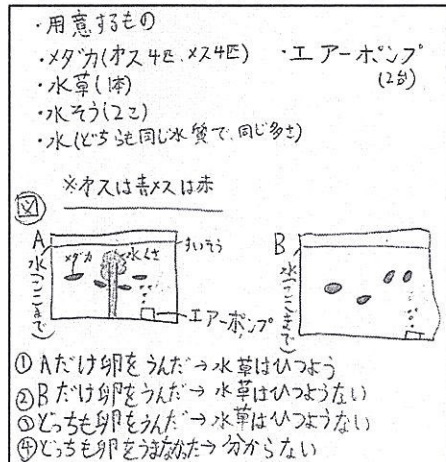 ・用意するもの
・メダカ(オス4匹、メス4匹)
・エアーポンプ
(2台)
・水草(1体)
・水そう(2こ)
・水(どちらも同じ水質で、同じ多さ)
※オスは青メスは赤
図
A
水(ここまで)
メダカ
水くさ
すいそう
エアーポンプ
B
水(ここまで)
①Aだけ卵をうんだ→水草はひつよう
②Bだけ卵をうんだ→水草はひつようない
③どっちも卵をうんだ→水草はひつようない
④どっちも卵をうまなかった→分からない